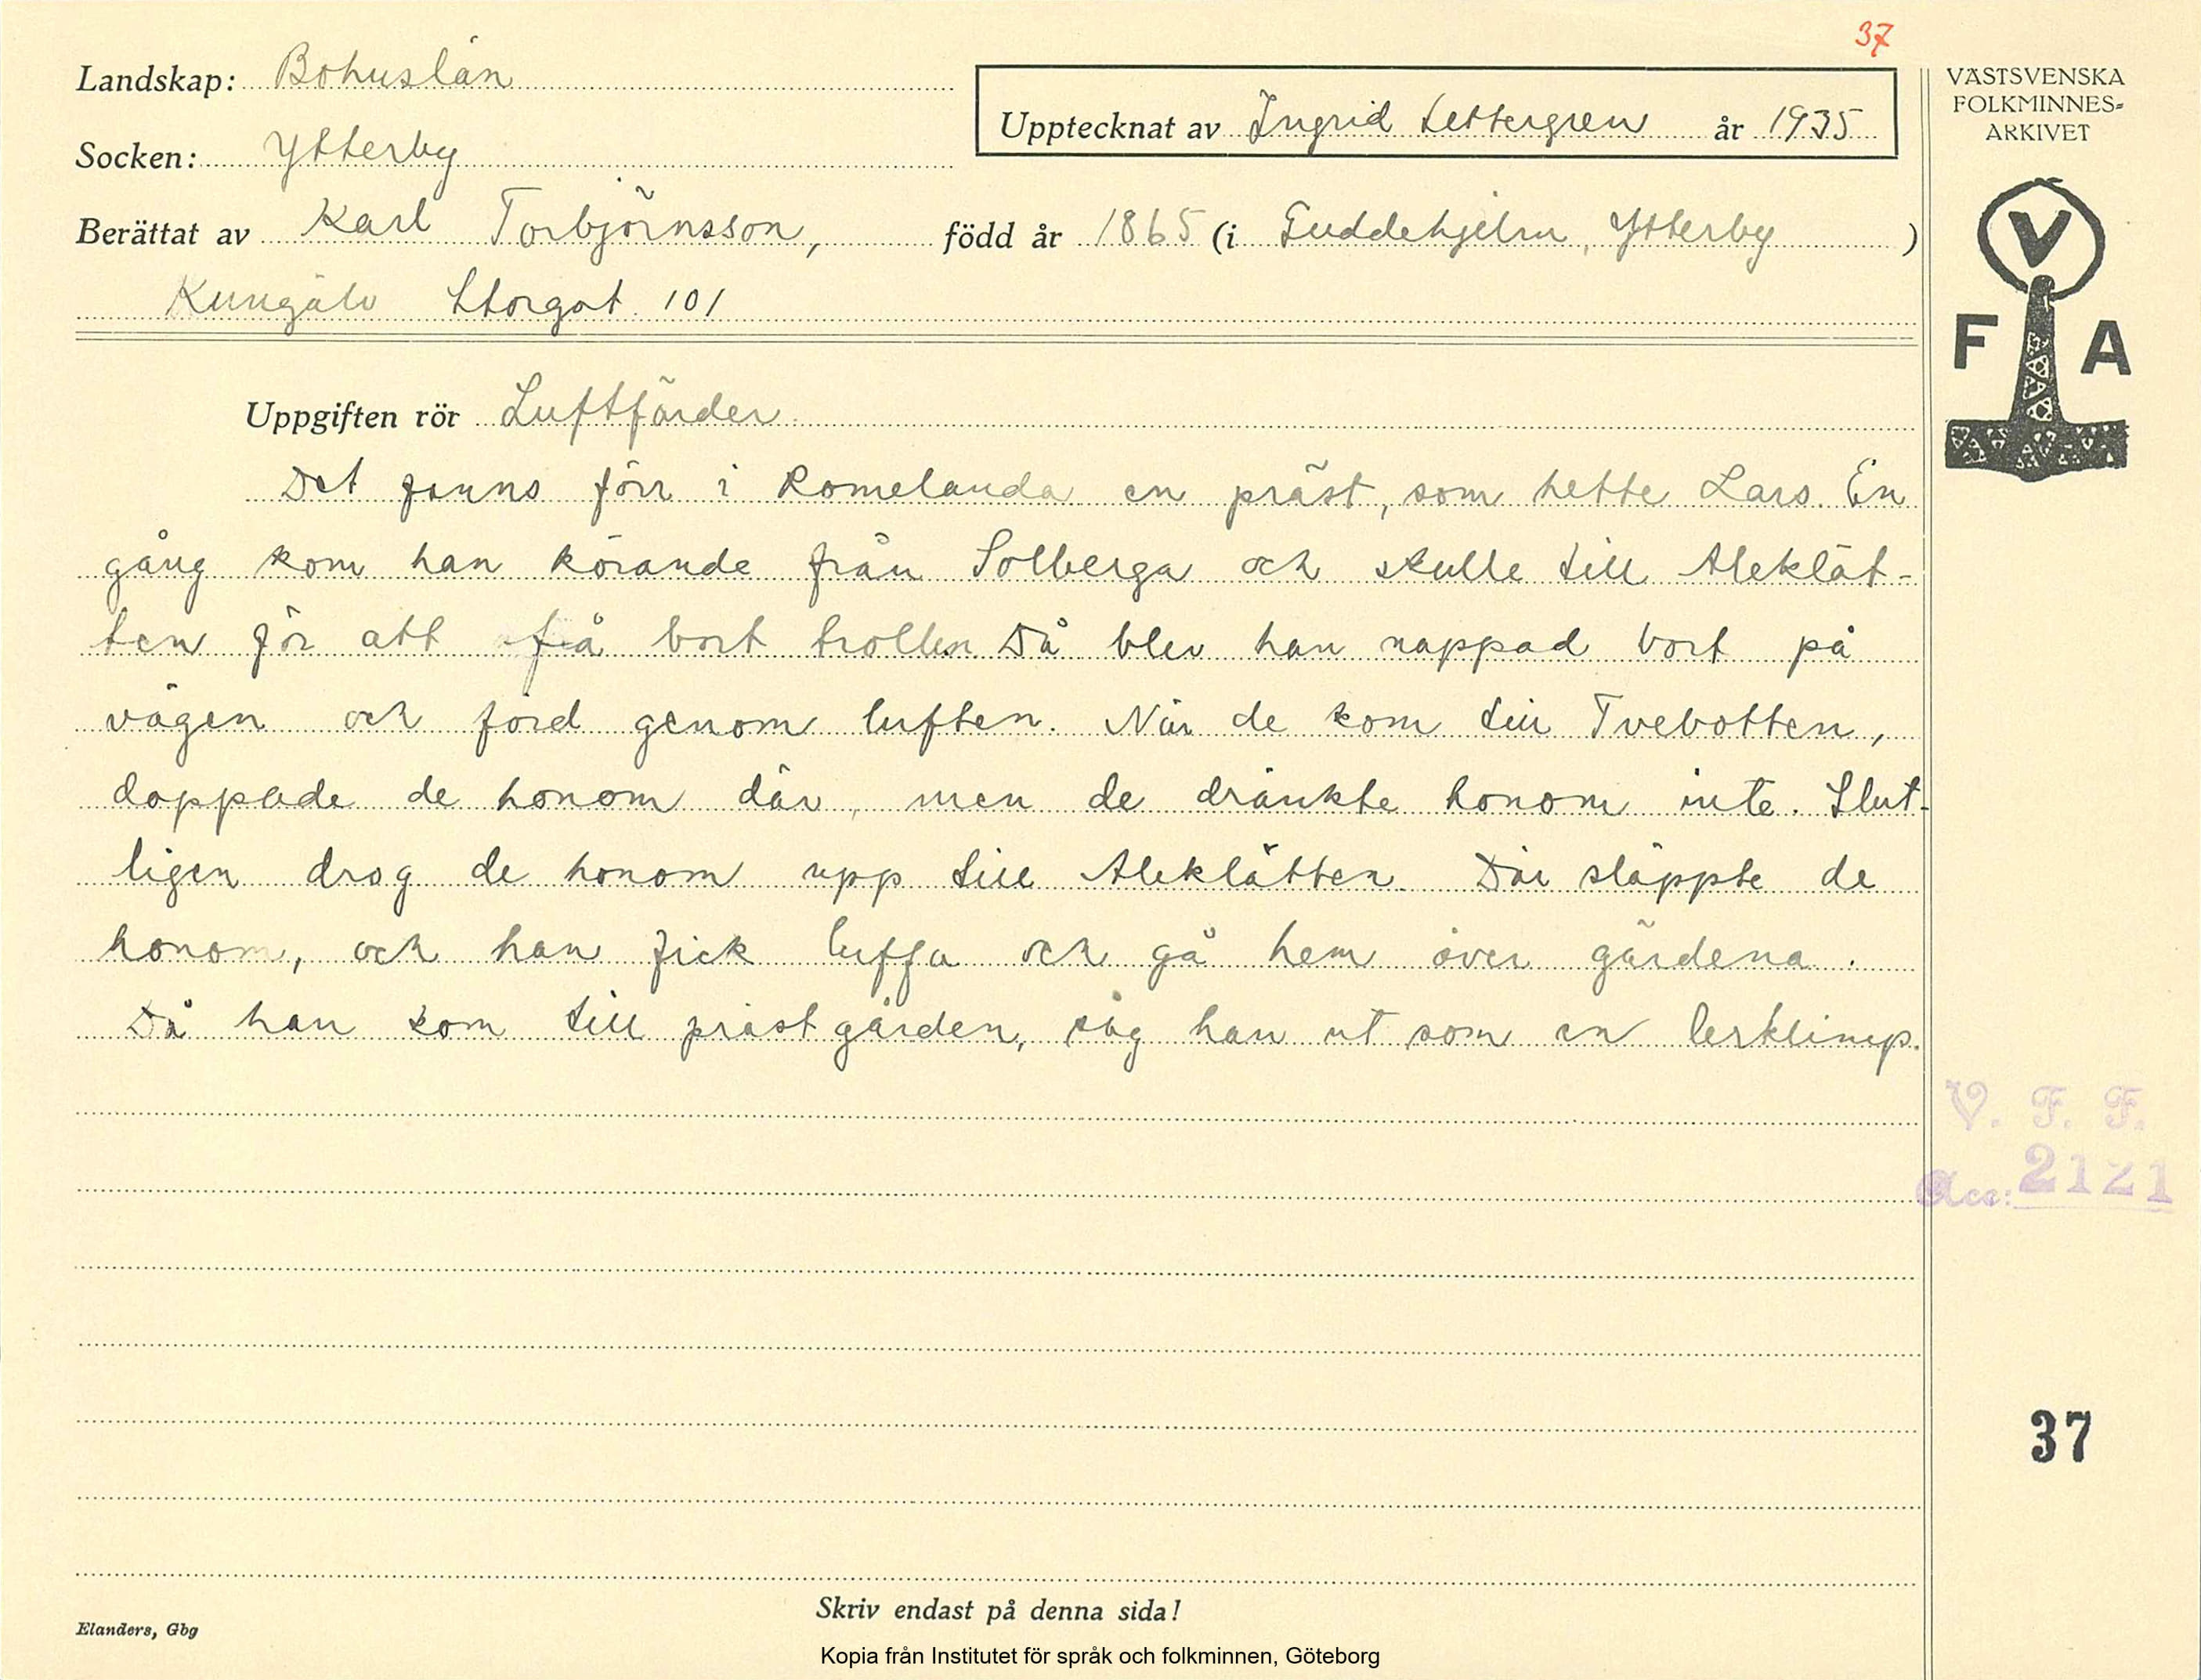 37
Landskap: Bohuslän
Socken: Ytterby
Upptecknat av Ingrid Settergren år 1935
Berättat av Karl Torbjörnsson, född år 1865 (i Guddehjelm, Ytterby )
Kungälv Storgat. 101
VÄSTSVENSKA
FOLKMINNES-
ARKIVET
V
F A
Uppgiften rör Luftfärder
Det fanns förr i Romelanda en präst, som hette Lars. En
gång kom han körande från Solberga och skulle till Aleklät-
ten för att få bort trollen Då blev han nappad bort på
vägen och förd genom luften. När de kom till Tvebotten,
doppade de honom där, men de dränkte honom inte. Slut-
ligen drog de honom upp till Aleklätten. Där släppte de
honom, och han fick luffa och gå hem över gärdena.
Då han kom till prästgården, såg han ut som en lerklimp.
V. F. F.
Acc: 2121
37
Skriv endast på denna sida!
Elanders, Gbg
Kopia från Institutet för språk och folkminnen, Göteborg